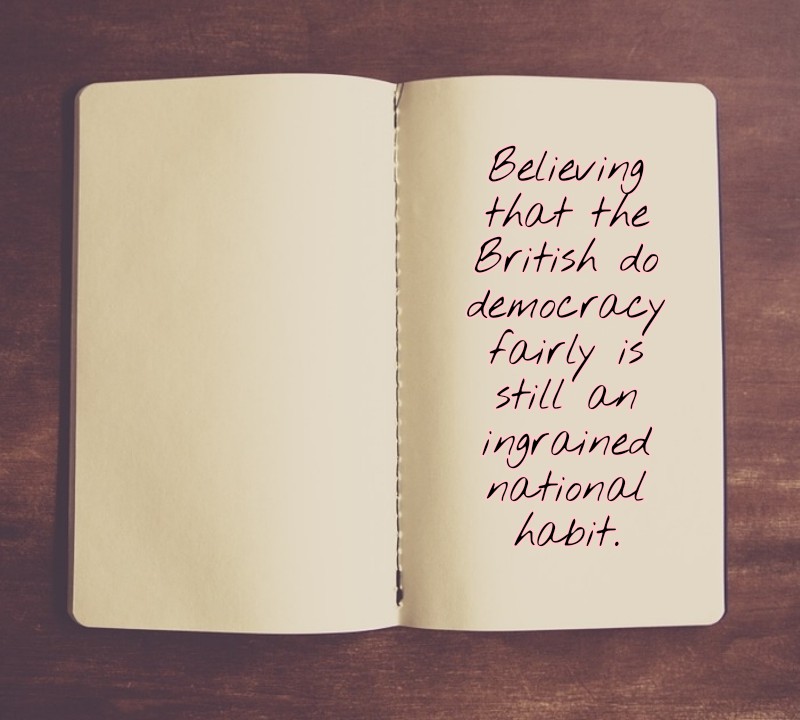 Believing
that the
British do
democracy
fairly is
still an
ingrained
national
habit.